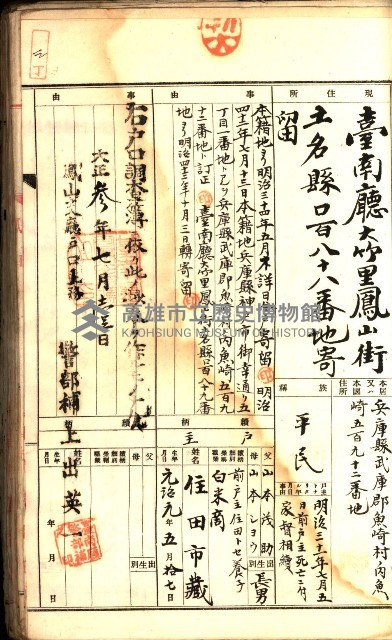 住所
現
臺南廳大竹里鳳山街
土名縣口百八十八番地寄
留
事由
本籍地ヨリ明治三十四年五月不詳日寄留
明治
四十一年七月十三日本籍兵庫縣神戸市御幸通り五
丁目一番地トアルヲ兵庫縣武庫郡魚崎村ノ内魚崎五百九
十二番地ト訂正
臺南廳大竹里鳳山街土名縣口百八十九番
地ヨリ明治四十三年十月三日轉寄留
事由
右戸口調査簿ニ依リ此ノ
大正參年七月壱日
鳳山支廳戸口主務
警部補上出英一
本籍
又ハ
本國住所
兵庫縣武庫郡魚崎村ノ内魚
崎五百九十二番地
族稱
平民
明治三十一年七月五
日前戸主死亡ニ付
家督相續
戸主
續柄
父
山本茂助
母
山本シヨウ
出生別
長男
前戸主住田トセ養子
白米商
姓名
住田市藏
生年月日
元治元年五月拾七日
父
母
出生別
姓名
生年月日
高雄市立歷史博物館
KAOHSIUNG MUSEUM OF HISTORY